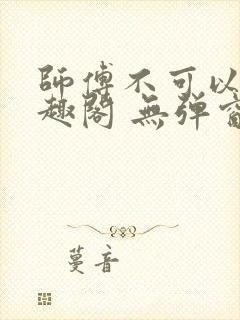 師傅不可以
趣閣 無彈
蔓音